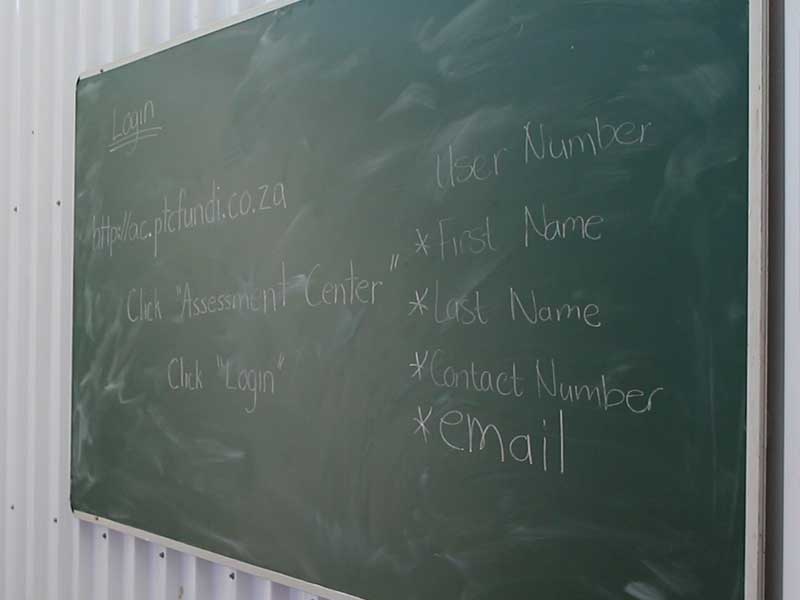 Login
http://ac.ptcfundi.co.za
Click "Assessment Center"
Click "Login"
User Number
*First Name
*Last Name
*Contact Number
*email